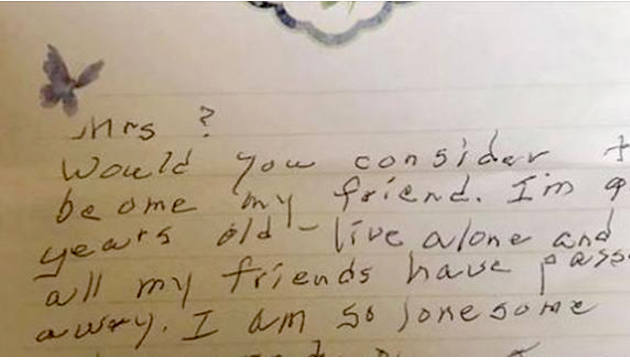 Mrs ?
Would you consider
be ome my friend. I'm 9
years old - live alone and
all my friends have pass
away. I am so lonesome